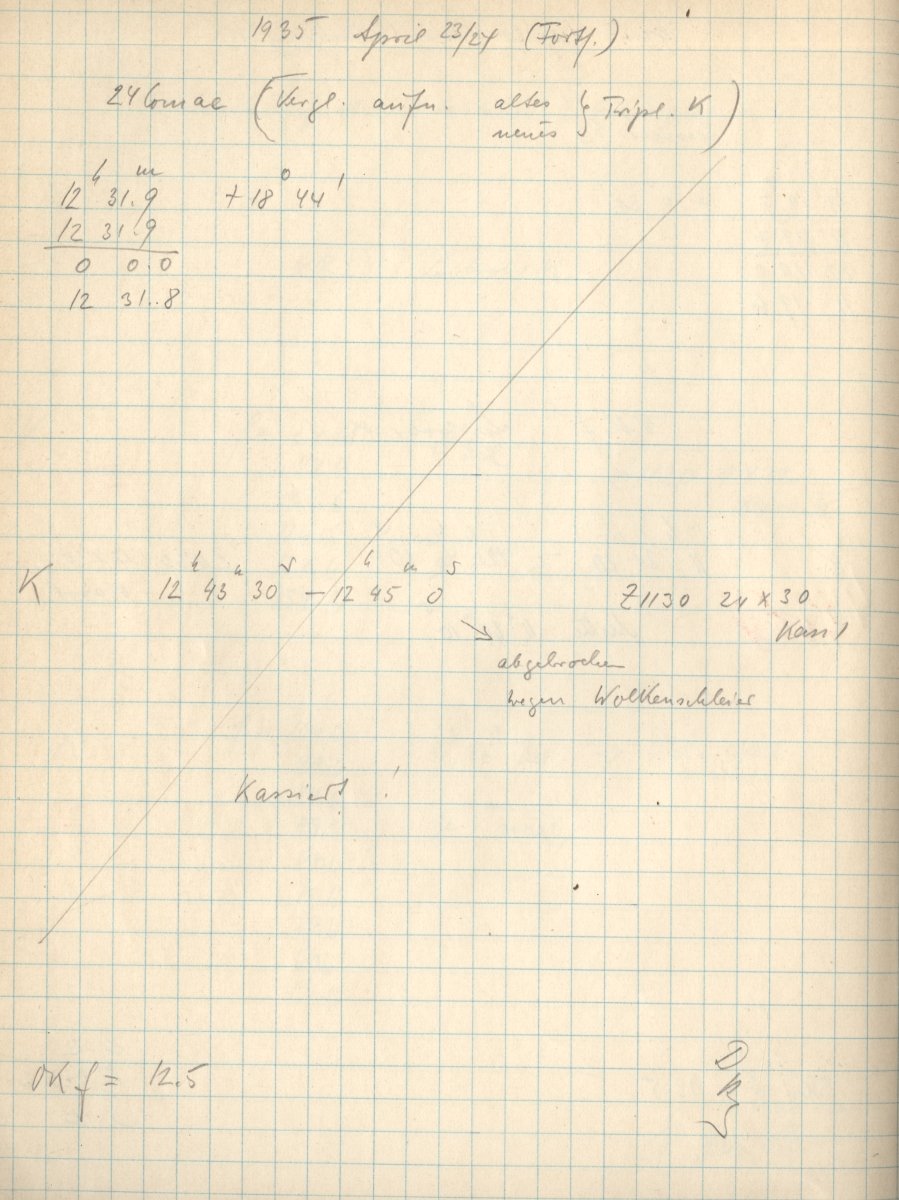 1935 April 23/24 (Fortf.)
24 Comae (Vergl. aufn. altes } Tripl. K)
neues
12h 31m.9 +18° 44'
12 31.9
0 0.0
12 31.8
K 12h 43m 30s – 12h 45m 0s Z1130 24 x 30
Kass!
abgebrochen
wegen Wolkenschleier
Kassiert !
OK f = 12.5